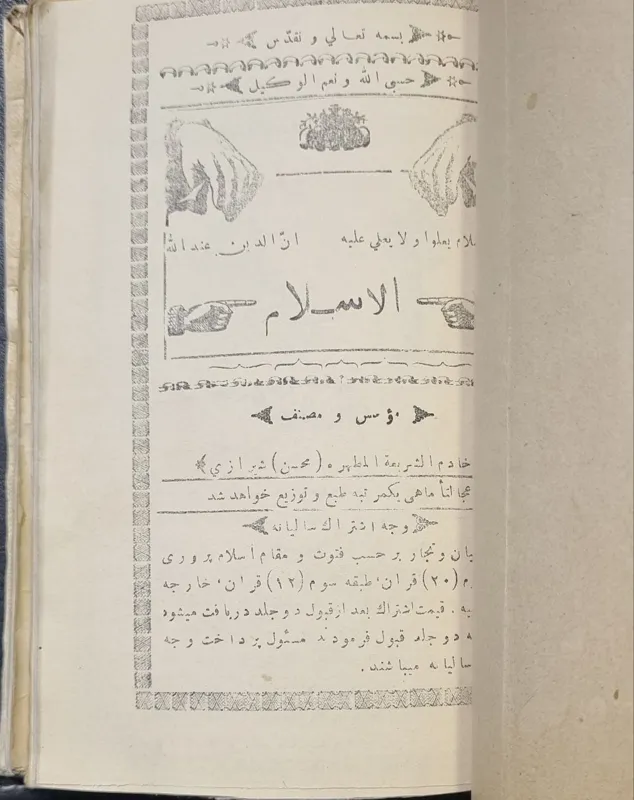 بسمه تعالي و تقدّس
حسبي الله و نعم الوكيل
يعلوا و لا يعلي عليه انّ الدين عند الله
الاسلام
مؤسس و مصنف
خادم الشريعة المطهره (محسن) شيرازي
عجالتاً ماهى يكمرتبه طبع و توزيع خواهد شد
وجه اشتراك ساليانه
وتجار بر حسب فتوت و مقام اسلام پروری
(٢٠) قران، طبقه سوم (١٢) قران، خارجه
قيمت اشتراك بعد از قبول دو جلد دريافت ميشود
دو جلد قبول فرمودند مسئول پرداخت وجه
ساليانه ميباشند .